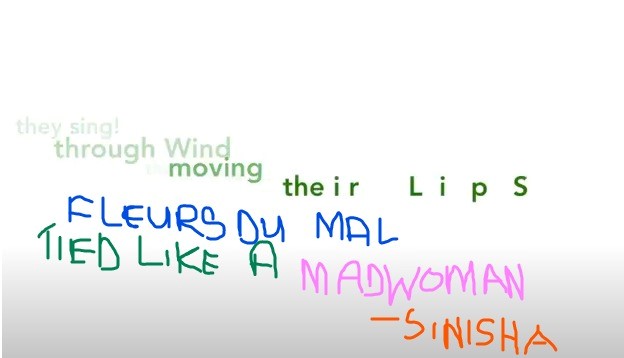 they sing!
through Wind
moving
their LipS
FLEURS DU MAL
TIED LIKE A
MADWOMAN
-SINISHA